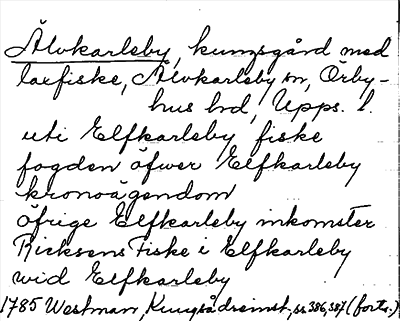 Älvkarleby, kungsgård med
laxfiske, Älvkarleby sn, Örby-
hus hd, Upps. l.
uti Elfkarleby fiske
fogden öfwer Elfkarleby
kronoägendom
öfrige Elfkarleby inkomster
Ricksens Fiske i Elfkarleby
wid Elfkarleby
1785 Westman, Kungsådreinst., ss 386,387 (forts.)